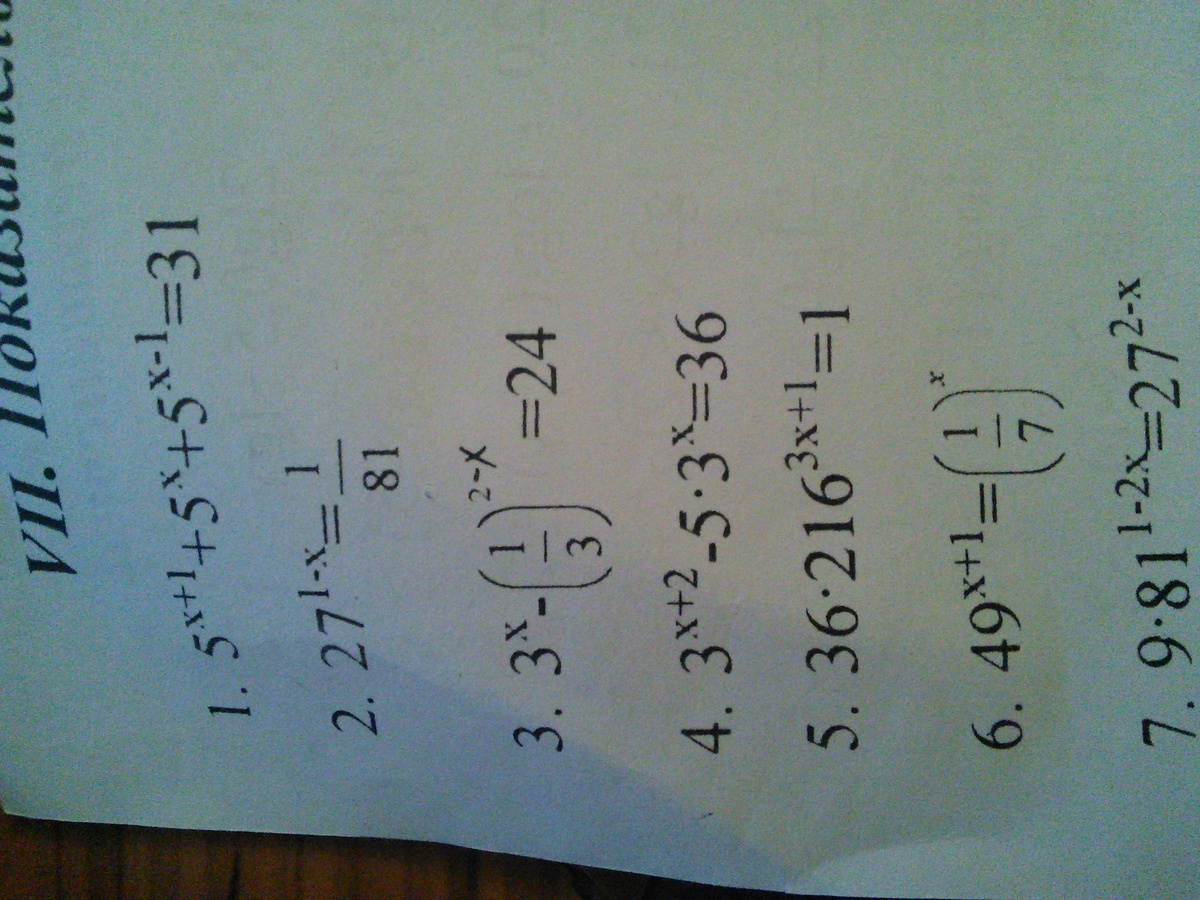 VII.
1. 5^{x+1}+5^x+5^{x-1}=31
2. 27^{1-x}=\frac{1}{81}
3. 3^x-\left(\frac{1}{3}\right)^{2-x}=24
4. 3^{x+2}-5·3^x=36
5. 36·216^{3x+1}=1
6. 49^{x+1}=\left(\frac{1}{7}\right)^x
7. 9·81^{1-2x}=27^{2-x}